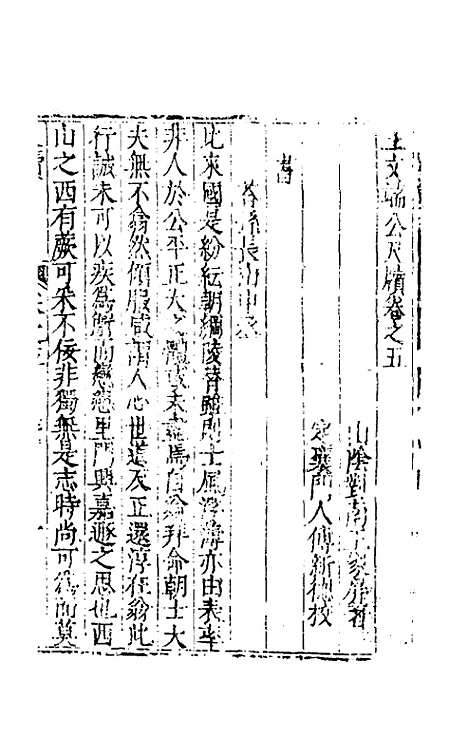 王文端公尺牘卷之五
山陰對南王家屏著
定襄門人傅新德校
書
答孫長山中丞
比來國是紛紜朝綱陵替雖則士風澆海亦由表率
非人於公平正大之體或未盡焉自翁拜命朝士大
夫無不翕然傾服咸謂人心世道反正還淳在翁此
行誠未可以疾為辭而戀戀里門興嘉遯之思也西
山之西有蕨可采不佞非獨無是志時尚可為而莫